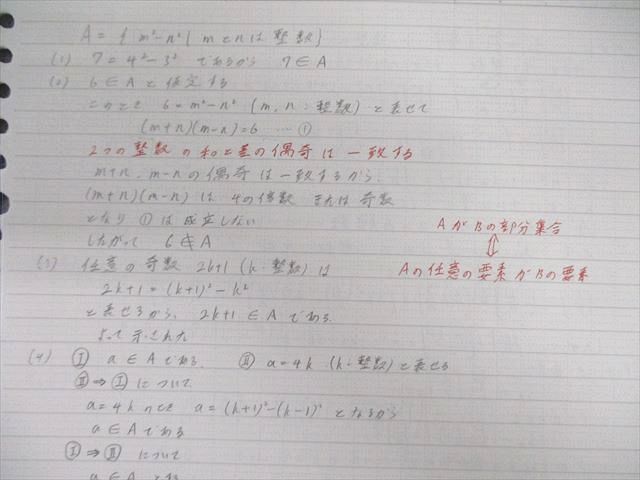 A = { m²-n² | mとnは整数}
(1) 7 = 4²-3² であるから 7∈A
(2) 6∈Aと仮定する
このとき 6=m²-n² (m,n:整数) と表せて
(m+n)(m-n)=6 …①
2つの整数の和と差の偶奇は一致する
m+n, m-nの偶奇は一致するから
(m+n)(m-n) は 4の倍数 または 奇数
となり ①は成立しない
したがって 6∉A
AがBの部分集合
⇕
Aの任意の要素がBの要素
(3) 任意の奇数 2k+1 (k:整数)は
2k+1=(k+1)²-k²
と表せるから, 2k+1∈Aである
よって示された
(4) Ⓘ a∈Aである Ⅱ a=4k (k:整数)と表せる
Ⅱ⇒Ⓘ について
a=4kのとき a=(k+1)²-(k-1)² となるから
a∈Aである
Ⓘ⇒Ⅱ について
a∈Aである